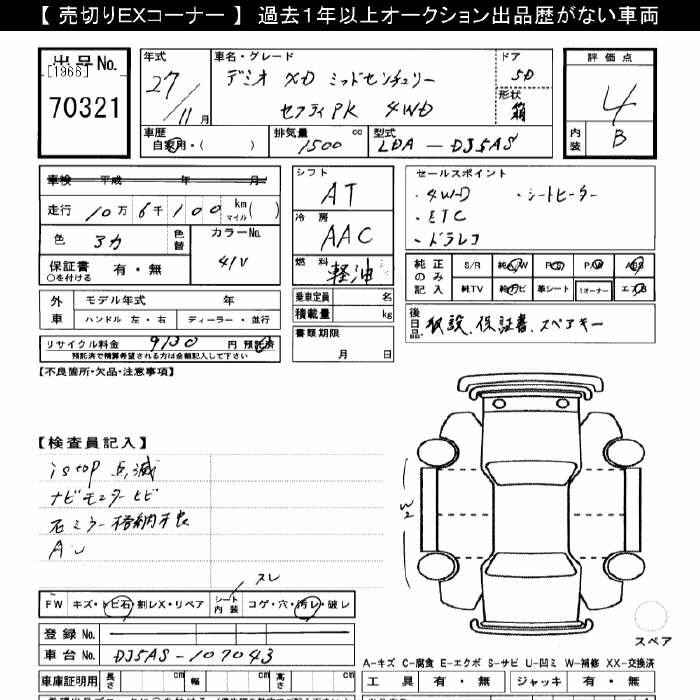 【 売切りEXコーナー 】 過去1年以上オークション出品歴がない車両
出品No.
[1966]
70321
年式
27/11月
車名・グレード
デミオ XD ミッドセンチュリー
セフティPK 4WD
ドア
5D
形状
箱
評価点
4
内装
B
車歴
自家用・( )
排気量
1500 cc
型式
LDA - DJ5AS
車検 平成 年 月
走行 10万 6千 100 km マイル ( )
色 アカ
色替
カラーNo.
41V
保証書 有・無
○を付ける
外車
モデル年式 年
ハンドル 左・右 ディーラー・並行
リサイクル料金 9130 円 預託済
預託済で精算希望される方は金額記入して下さい
シフト
AT
冷房
AAC
燃料
軽油
乗車定員 名
積載量 kg
書類期限
月 日
セールスポイント
・4WD ・シートヒーター
・ETC
・ドラレコ
純正のみ記入
S/R 純AW P/S P/W ABS
純TV 純ナビ 革シート 1オーナー エアB
後日品
取説、保証書、スペアキー
【不良箇所・欠品・注意事項】
【検査員記入】
istop 点滅
ナビモニター ヒビ
右ミラー格納不良
AU
W2
スレ
FW キズ・トビ石・割レX・リペア
シート内装 コゲ・穴・汚レ・破レ
登録No.
車台No. DJ5AS-107043
スペア
A-キズ C-腐食 E-エクボ S-サビ U-凹ミ W-補修 XX-交換済
車庫証明用 長さ cm 幅 cm 高さ cm
工具 有・無 ジャッキ 有・無